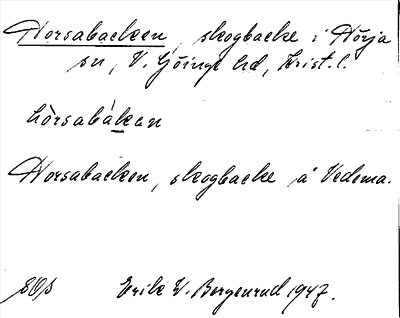 Horsabacken, skogbacke i Hörja
sn, V. Göinge hd, Krist. l.
hòrsabákan
Horsabacken, skogbacke å Vedema.
Erik W. Bergenrud 1947.